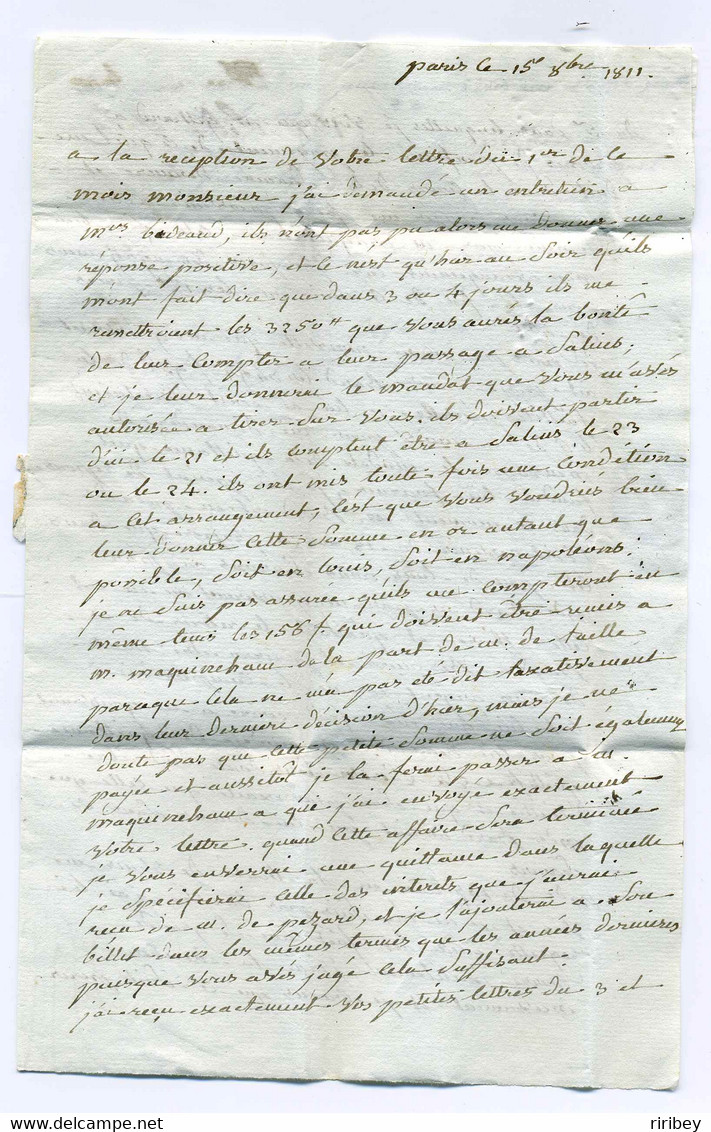 paris le 15e 8bre 1811.
a la reception de votre lettre du 1er de ce
mois monsieur j'ai demandé un entretien a
mrs bideaud, ils n'ont pas pu alors me donner une
réponse positive, et ce n'est qu'hier au soir qu'ils
m'ont fait dire que dans 3 ou 4 jours ils me
remettroient les 3250tt que vous aurés la bonté
de leur compter a leur passage a Salins,
et je leur donnerai le mandat que vous m'avés
autorisée a tirer sur vous. ils doivent partir
d'ici le 21 et ils comptent être a Salins le 23
ou le 24. ils ont mis toute fois une condition
a cet arrangement, c'est que vous voudriés bien
leur donner cette somme en or autant que
possible, soit en louis, soit en napoléons;
je ne suis pas assurée qu'ils me compteront en
même tems les 156 f. qui doivent être remis a
m. maquineham de la part de m. de taille
parceque cela ne m'a pas été dit taxativement
dans leur derniere décision d'hier, mais je ne
doute pas que cette petite somme ne soit également
payée et aussitôt je la ferai passer a m.
maquineham a qui j'ai envoyé exactement
votre lettre. quand cette affaire sera terminée
je vous enverrai une quittance dans laquelle
je spécifierai celle des interets que j'aurai
recu de m. de pezard, et je l'ajouterai a son
billet dans les mêmes termes que les années dernieres
puisque vous avés jugé cela suffisant.
j'ai reçu exactement vos petites lettres du 3 et
riribey